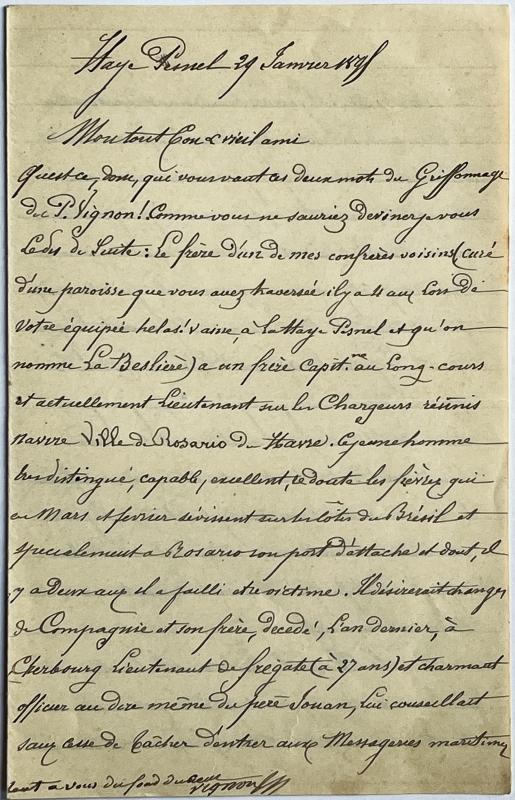 Haye Pesnel 29 Janvier
Mon tout bon & vieil ami
Qu'est ce, donc, qui vous vaut ces deux mots du Griffonnage
du P. Vignon! Comme vous ne sauriez deviner je vous
le dis de suite: Le frère d'un de mes confrères voisins (curé
d'une paroisse que vous avez traversée il y a 4 ans lors de
votre équipée helas! vaine, à la Haye Pesnel et qu'on
nomme La Beslière) a un frère capit.ne au long-cours
et actuellement Lieutenant sur les Chargeurs réunis
navire Ville de Rosario du Havre. Ce jeune homme
très distingué, capable, excellent, redoute les fièvres qui
en Mars et fevrier sévissent sur les côtes du Brésil et
specialement a Rosario son port d'attache et dont, il
y a Deux ans il a failli etre victime. Il désirerait changer
de Compagnie et son frère, decedé, l'an dernier, à
Cherbourg Lieutenant de frégate (à 27 ans) et charmant
officier au dire même du père Jouan, lui conseillait
sans cesse de tâcher d'entrer aux Messageries maritimes
tout a vous du fond du cœur
Vignon